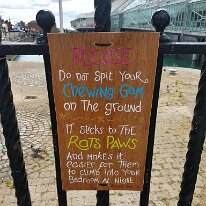 PLEASE
Do not Spit Your
CHEWING GUM
on THE ground
IT sticks to THE
RATS PAWS
And makes it
easier for THEM
to climb into YouR
Bedroom at Night